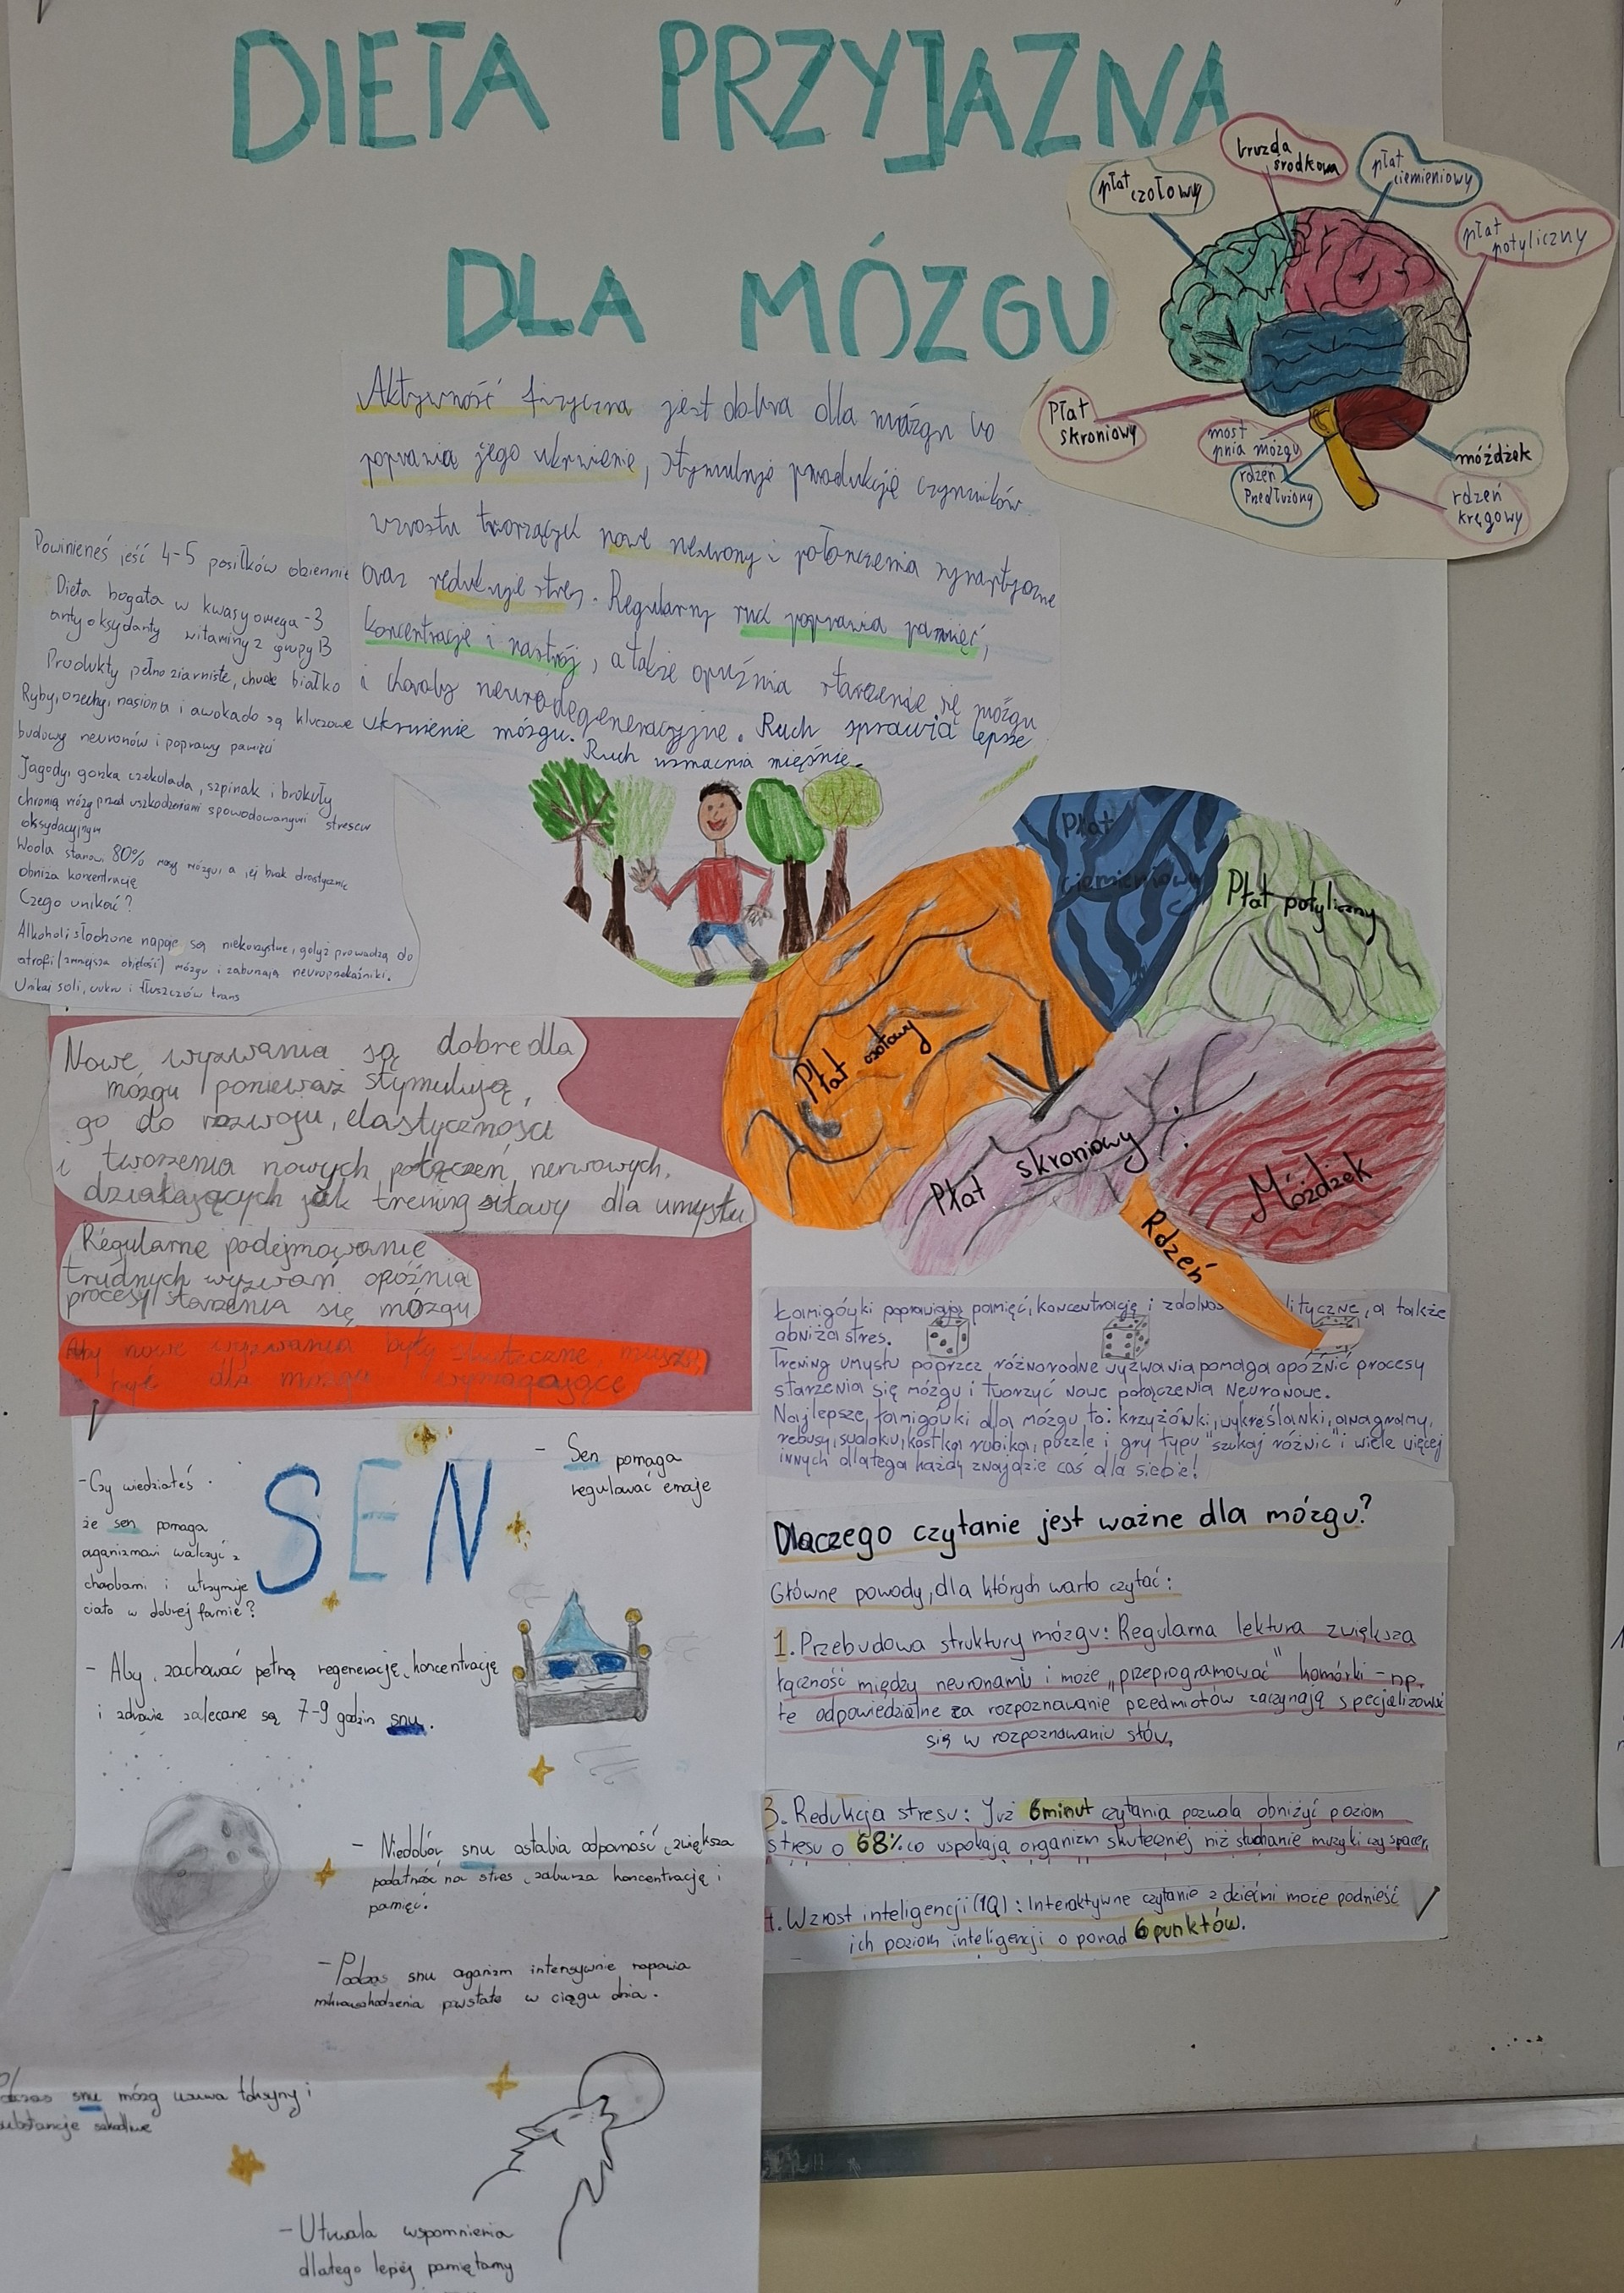 DIETA PRZYJAZNA
DLA MÓZGU
płat czołowy
bruzda środkowa
płat ciemieniowy
płat potyliczny
Płat skroniowy
most pnia mózgu
rdzeń Przedłużony
móżdżek
rdzeń kręgowy
Aktywność fizyczna jest dobra dla mózgu bo
poprawia jego ukrwienie, stymuluje produkcję czynników
wzrostu tworzących nowe neurony i połonczenia synaptyczne
oraz redukuje stres. Regularny ruch poprawia pamięć,
koncentrację i nastrój, a także opuźnia starzenie się mózgu
i choroby neurodegeneracyjne. Ruch sprawia lepsze
ukrwienie mózgu.
Ruch wzmacnia mięśnie.
Powinieneś jeść 4-5 posiłków dziennie
Dieta bogata w kwasy omega-3
antyoksydanty witaminy z grupy B
Produkty pełnoziarniste, chude białko
Ryby, orzechy, nasiona i awokado są kluczowe
budowy neuronów i poprawy pamięci
Jagody, gorzka czekolada, szpinak i brokuły
chronią mózg przed uszkodzeniami spowodowanymi stresem
oksydacyjnym
Woda stanowi 80% masy mózgu, a jej brak drastycznie
obniża koncentrację
Czego unikać?
Alkohol i słodzone napoje są niekorzystne, gdyż prowadzą do
atrofi (zmniejsza objętość) mózgu i zaburzają neuroprzekaźniki.
Unikaj soli, cukru i tłuszczów trans
Płat
ciemieniowy
Płat potyliczny
Płat czołowy
Płat skroniowy
Móżdżek
Rdzeń
Nowe wyzwania są dobre dla
mózgu ponieważ stymulują,
go do rozwoju, elastyczności
i tworzenia nowych połączeń nerwowych,
działających jak trening siłowy dla umysłu
Regularne podejmowanie
trudnych wyzwań opóźnia
procesy starzenia się mózgu
Aby nowe wyzwania były skuteczne, muszą
być dla mózgu wymagające
Łamigówki poprawiają pamięć, koncentrację i
a także
obniża stres.
Trening umysłu poprzez różnorodne wyzwania pomaga opóźnić procesy
starzenia się mózgu i tworzyć nowe połączenia Neuronowe.
Najlepsze łamigówki dla mózgu to: krzyżówki, wykreślanki, anagramy,
rebusy, sudoku, kostka rubika, puzzle i gry typu "szukaj różnic" i wiele więcej
innych dlatego każdy znajdzie coś dla siebie!
SEN
-Czy wiedziałeś
że sen pomaga
organizmowi walczyć z
chorobami i utrzymuje
ciało w dobrej formie?
- Sen pomaga
regulować emocje
- Aby zachować pełną regenerację, koncentrację
i zdrowie zalecane są 7-9 godzin snu.
- Niedobór snu osłabia odporność, zwiększa
podatność na stres, zaburza koncentrację i
pamięć.
- Podczas snu organizm intensywnie naprawia
mikrouszkodzenia powstałe w ciągu dnia.
snu mózg usuwa toksyny i
substancje szkodliwe
- Utrwala wspomnienia
dlatego lepiej pamiętamy
Dlaczego czytanie jest ważne dla mózgu?
Główne powody, dla których warto czytać:
1. Przebudowa struktury mózgu: Regularna lektura zwiększa
łączność między neuronami i może „przeprogramować" komórki - np.
te odpowiedzialne za rozpoznawanie przedmiotów zaczynają specjalizować
się w rozpoznawaniu słów.
3. Redukcja stresu: Już 6minut czytania pozwala obniżyć poziom
stresu o 68% co uspokaja organizm skuteczniej niż słuchanie muzyki czy spacer.
4. Wzrost inteligencji (IQ): Interaktywne czytanie z dziećmi może podnieść
ich poziom inteligencji o ponad 6 punktów.